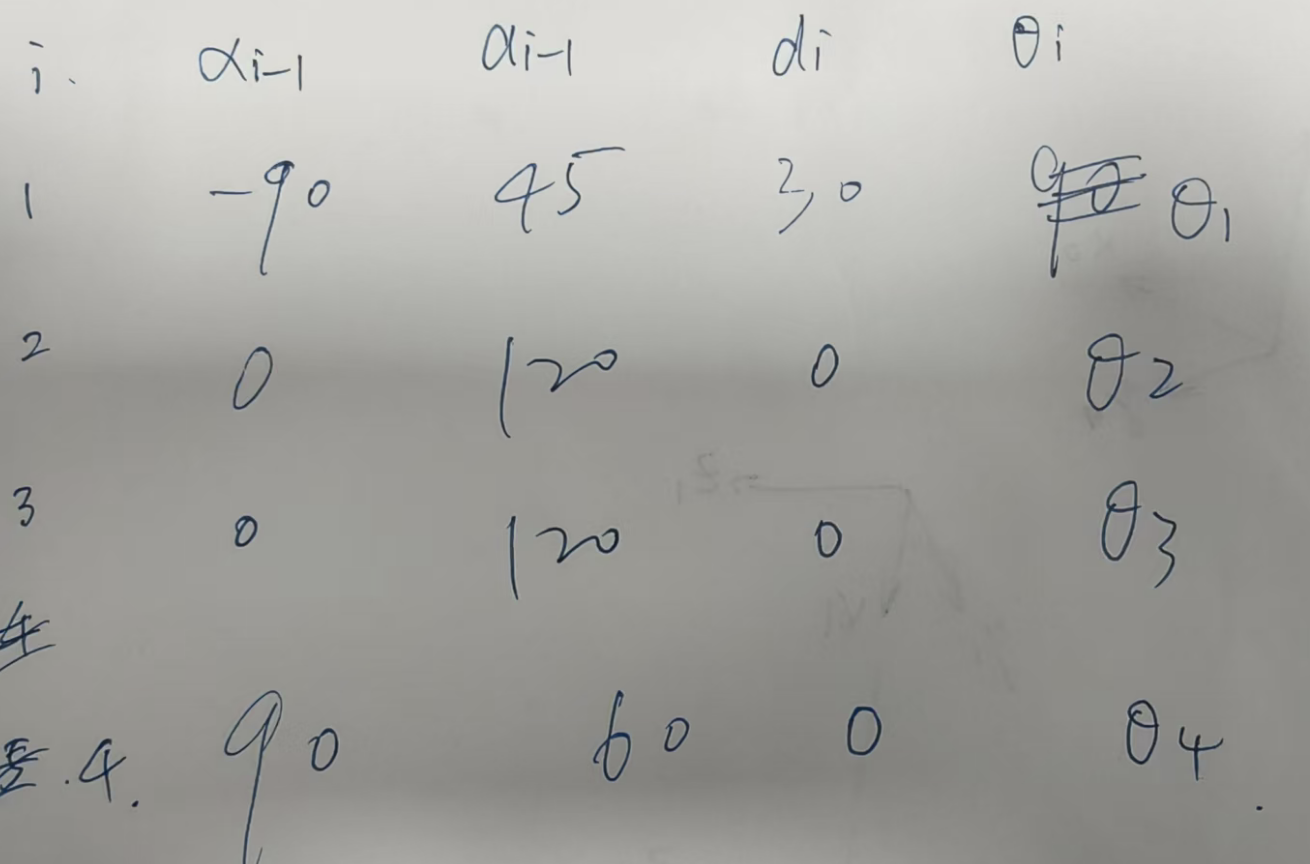 i. αi-1 ai-1 di θi
1 -90 45 30 θ1
2 0 120 0 θ2
3 0 120 0 θ3
4. 90 60 0 θ4